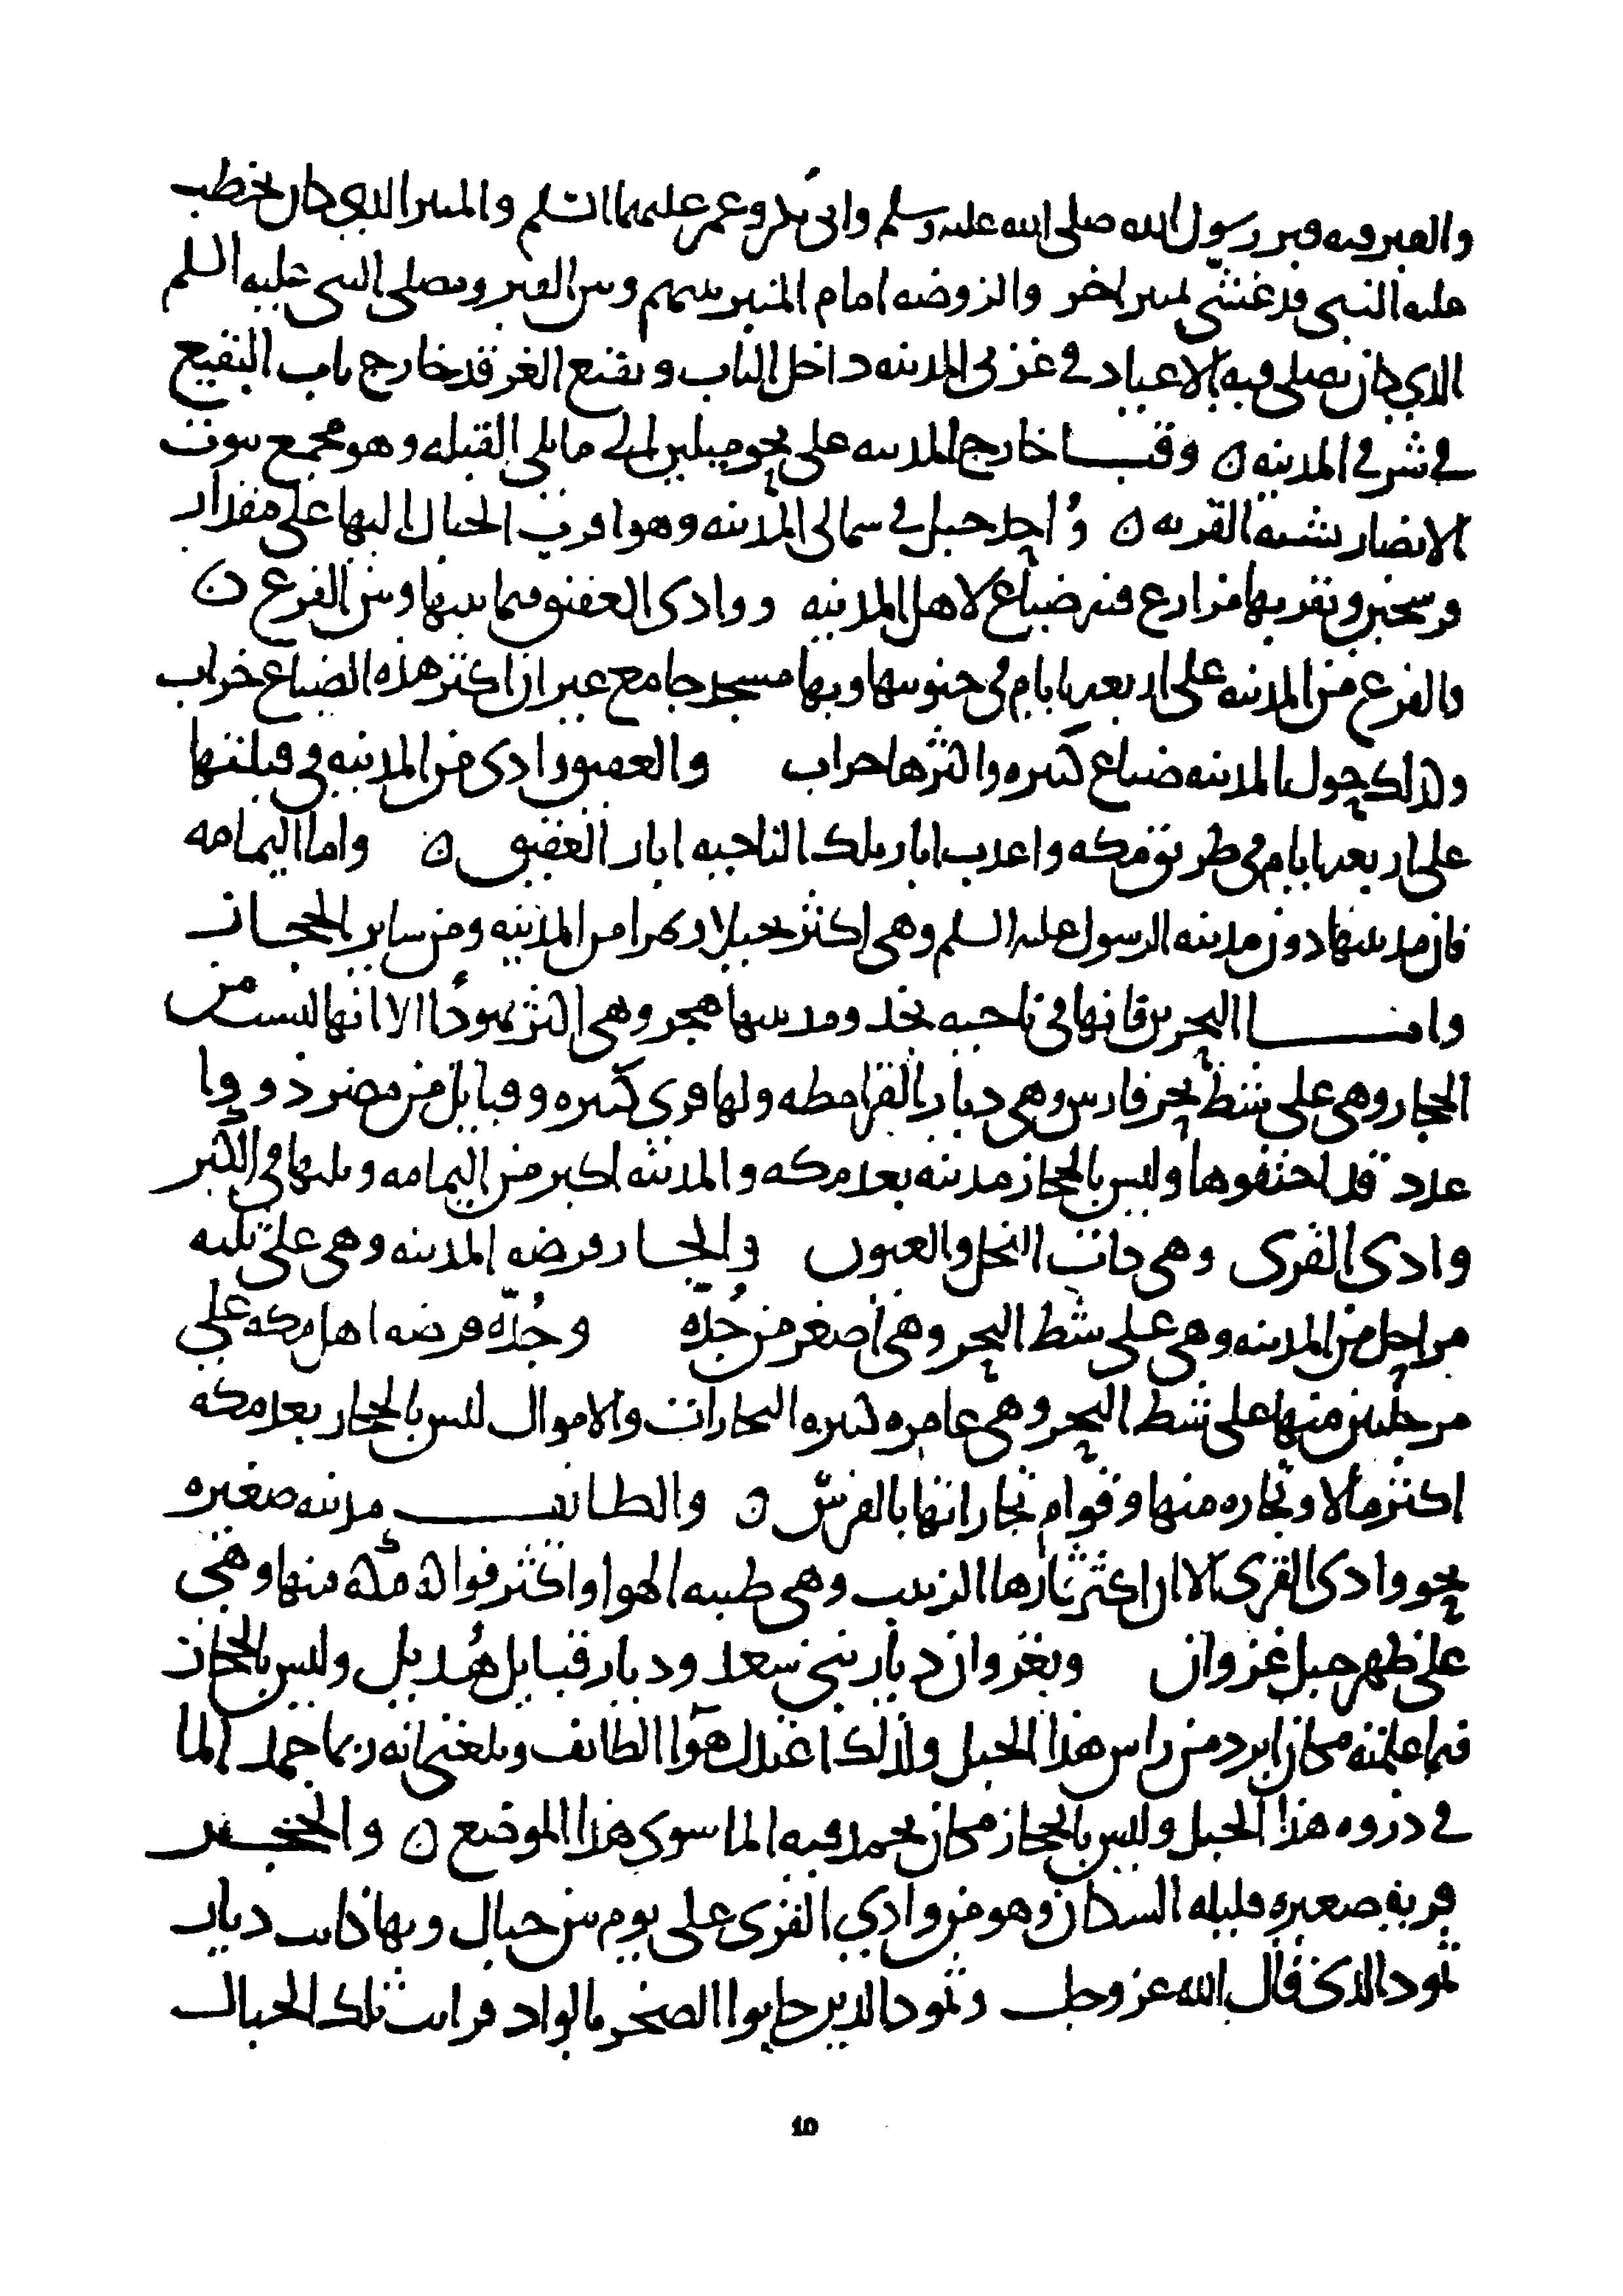 والقبر فيه قبر رسول الله صلى الله عليه وسلم وابى بكر وعمر عليهما السلم والمنبر الذي كان يخطب
عليه النبى قد غشّى لمنبر اخر والروضه امام المنبر بينهم وبين القبر ومصلى النبى عليه السلم
الذي كان يصلى فيه الاعياد فى غربى المدينه داخل الباب وبقيع الغرقد خارج باب البقيع
فى شرقى المدينه ن وقبا خارج المدينه على نحو ميلين الى ما يلى القبله وهو مجمع بيوت
الانصار يشبه القريه ن وأحد جبل فى شمالى المدينه وهو اقرب الجبال اليها على مقدار
فرسخين وبقربها مزارع فيه ضياع لاهل المدينه ووادى العقيق فيما بينها وبين الفرع ن
والفرع من المدينه على اربعه ايام فى جنوبيها وبها مسجد جامع غير ان اكثر هذه الضياع خراب
وكذلك حول المدينه ضياع كثيره واكثرها خراب والعقيق وادى من المدينه فى قبلتها
على اربعه ايام فى طريق مكه واعذب ابار بتلك الناحيه ابار العقيق ن واما اليمامه
فان مدينتها دون مدينه الرسول عليه السلم وهى اكثر نخيلا وتمرا من المدينه ومن ساير الحجاز
وامـا البحرين فانها فى ناحيه نجد ومدينتها هجر وهى اكثر تمورًا الا انها ليست من
الحجاز وهى على شط بحر فارس وهى ديار القرامطه ولها قرى كثيره وقبايل من مضر ذووا
عدد قد احتفوها وليس بالحجاز مدينه بعد مكه والمدينه اكبر من اليمامه ويليها فى الكبر
وادى القرى وهى ذات النخل والعيون والجار فرضه المدينه وهى على ثلثه
مراحل من المدينه وهى على شط البحر وهى اصغر من جُدّه وجُدّه فرضه اهل مكه على
مرحلتين منها على شط البحر وهى عامره كثيره التجارات والاموال ليس بالحجاز بعد مكه
اكثر مالا وتجاره منها وقوام تجاراتها بالفرس ن والطائف مدينه صغيره
نحو وادى القرى الا ان اكثر ثمارها الزبيب وهى طيبه الهوا واكثر فواكه مكه منها وهى
على ظهر جبل غزوان وبغزوان ديار بنى سعد وديار قبايل هُذيل وليس بالحجاز
فيما علمته مكان ابرد من راس هذا الجبل ولذلك اعتدل هوآ الطائف وبلغنى انه ربما جمد الما
فى ذروه هذا الجبل وليس بالحجاز مكان يجمد فيه الما سوى هذا الموضع ن والحجر
قريه صغيره قليله السكان وهو من وادي القرى على يوم بين جبال وبها كانت ديار
ثمود الذى قال الله عز وجل وثمود الذين جابوا الصخر بالواد فرايت تلك الجبال
10